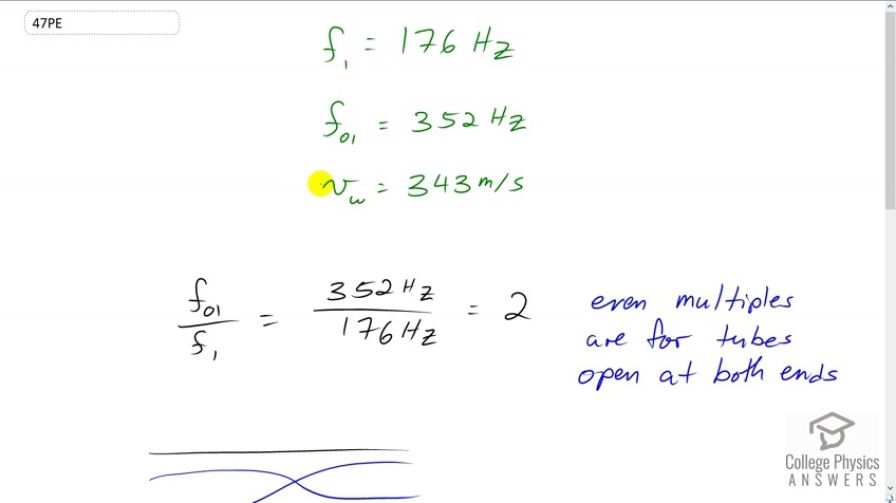 47PE
f₁ = 176 Hz
f₀₁ = 352 Hz
v_w = 343 m/s
f₀₁ / f₁ = 352 Hz / 176 Hz = 2
even multiples
are for tubes
open at both ends
College Physics
ANSWERS